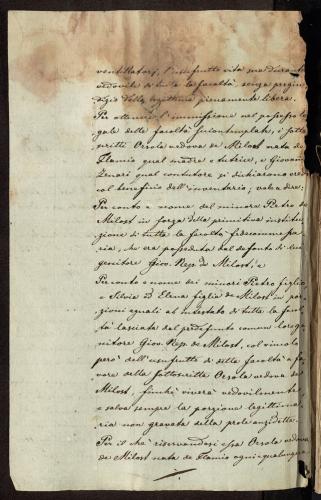 ventilatori, l'usufrutto vita sua durante
vedovile di tutta la facoltà, senza pregiu
dizio della legittima pienamente libera.
Per ottenere l'immissione nel possesso le
gale delle facoltà sucontemplate, i sotto
scritti Orsola vedova de Milost nata de
Flamio qual madre e tutrice, e Giovanni
Zenari qual contutore si dichiarano eredi
col beneficio dell'inventario; vale a dire:
Per conto e nome del minore Pietro de
Milost in forza della primitiva institu
zione di tutta la facoltà fidecommissa
ria, che era posseduta dal defonto di lui
genitore Giov. Nep. de Milost; e
Per conto e nome dei minori Pietro figlio
e Silvia ed Elena figlie de Milost in por
zioni eguali ab intestato di tutta la facol
tà lasciata dal predefunto comune loro ge
nitore Giov. Nep. de Milost, col vincolo
però dell'usufrutto di detta facoltà a fa
vore della sottoscritta Orsola vedova de
Milost, finchè viverà vedovilmente
e salva sempre la porzione legittima
ria non gravata della prole anzidetta.
Per il chè riservandosi essa Orsola vedova
de Milost nata de Flamio ogni qualunque